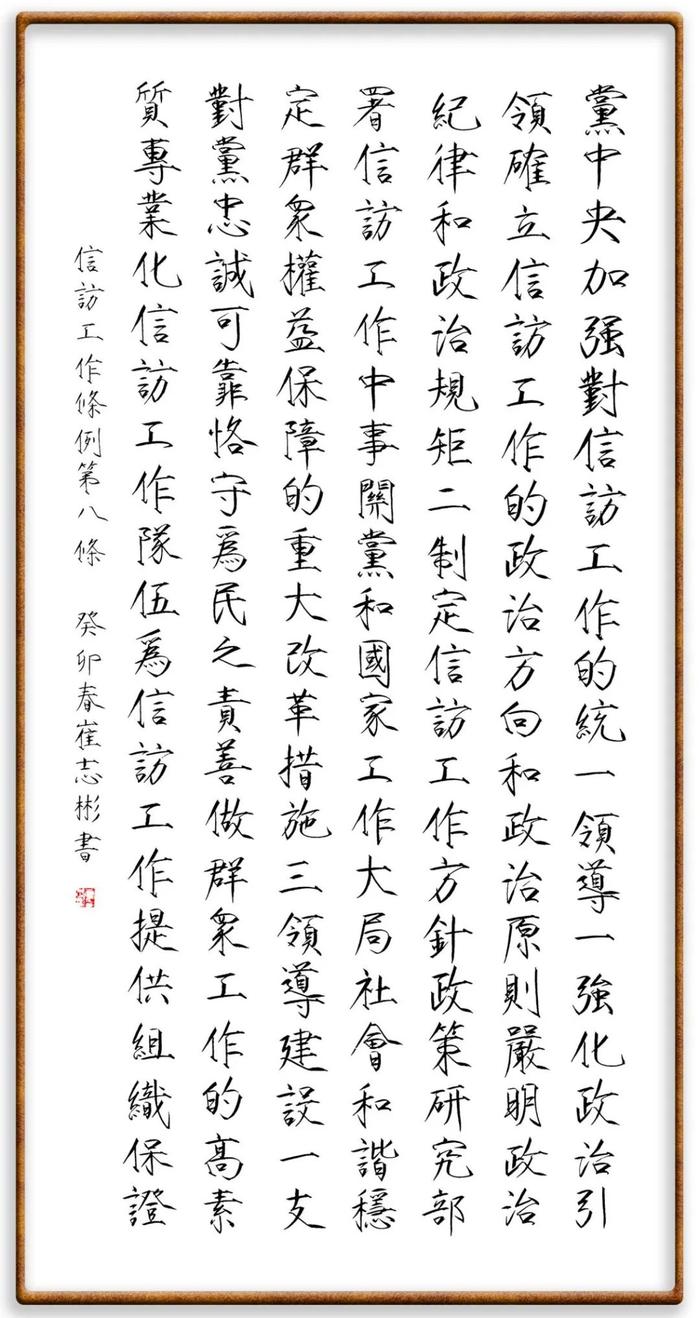 黨中央加强對信訪工作的統一領導一強化政治引
領確立信訪工作的政治方向和政治原則嚴明政治
紀律和政治規矩二制定信訪工作方針政策研究部
署信訪工作中事關黨和國家工作大局社會和諧穩
定群衆權益保障的重大改革措施三領導建設一支
對黨忠誠可靠恪守爲民之責善做群衆工作的高素
質專業化信訪工作隊伍爲信訪工作提供組織保證
信訪工作條例第八條 癸卯春崔志彬書